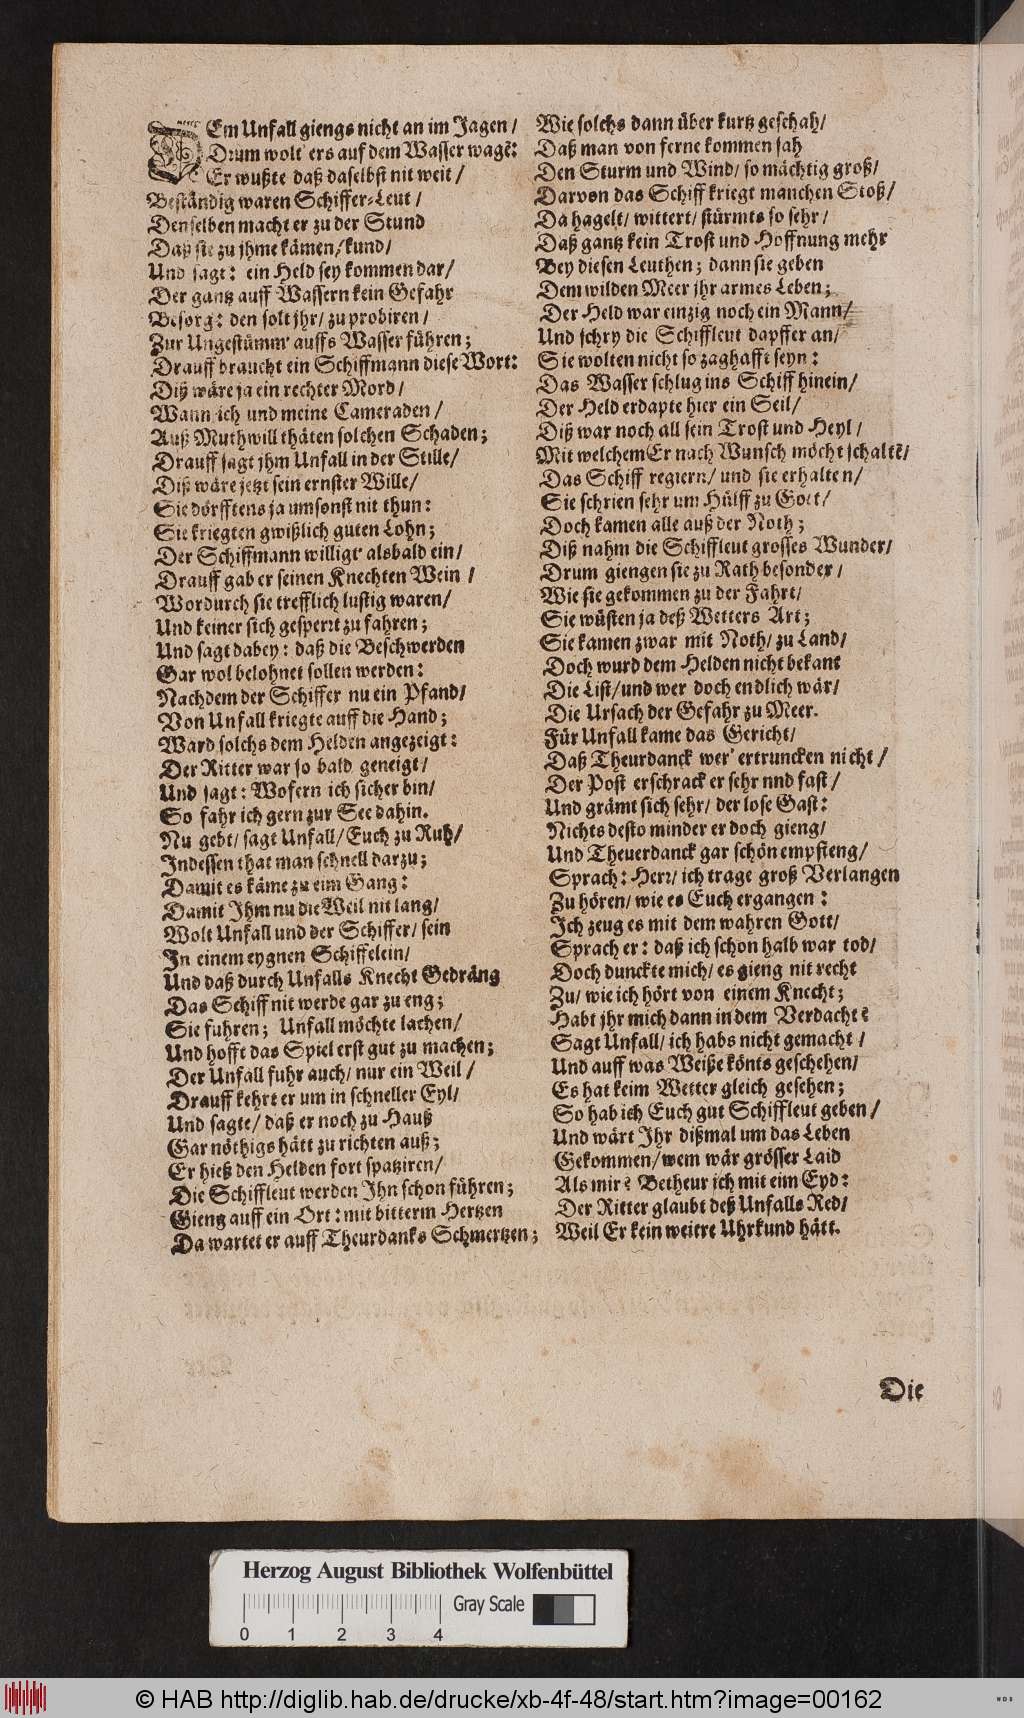 DEm Unfall giengs nicht an im Jagen /
Drum wolt' ers auf dem Wasser wagẽ:
Er wußte daß daselbst nit weit /
Beständig waren Schiffer-Leut /
Denselben macht er zu der Stund
Daß sie zu jhme kämen / kund /
Und sagt: ein Held sey kommen dar /
Der gantz auff Wassern kein Gefahr
Besorg: den solt jhr / zu probiren /
Zur Ungestümm' auffs Wasser führen;
Drauff braucht ein Schiffmann diese Wort:
Diß wäre ja ein rechter Mord /
Wann ich und meine Cameraden /
Auß Muthwill thäten solchen Schaden;
Drauff sagt jhm Unfall in der Stille /
Diß wäre jetzt sein ernster Wille /
Sie dörfftens ja umsonst nit thun:
Sie kriegten gwißlich guten Lohn;
Der Schiffmann willigt' alsbald ein /
Drauff gab er seinen Knechten Wein /
Wordurch sie trefflich lustig waren /
Und keiner sich gesperrt zu fahren;
Und sagt dabey: daß die Beschwerden
Gar wol belohnet sollen werden:
Nachdem der Schiffer nu ein Pfand /
Von Unfall kriegte auff die Hand;
Ward solchs dem Helden angezeigt:
Der Ritter war so bald geneigt /
Und sagt: Wofern ich sicher bin /
So fahr ich gern zur See dahin.
Nu gebt / sagt Unfall / Euch zu Ruh /
Indessen that man schnell darzu;
Damit es käme zu eim Gang:
Damit Ihm nu die Weil nit lang /
Wolt Unfall und der Schiffer / sein
In einem eygnen Schiffelein /
Und daß durch Unfalls Knecht Gedräng
Das Schiff nit werde gar zu eng;
Sie fuhren; Unfall möchte lachen /
Und hofft das Spiel erst gut zu machen;
Der Unfall fuhr auch / nur ein Weil /
Drauff kehrt er um in schneller Eyl /
Und sagte / daß er noch zu Hauß
Gar nöthigs hätt zu richten auß;
Er hieß den Helden fort spatziren /
Die Schiffleut werden Ihn schon führen;
Gieng auff ein Ort: mit bitterm Hertzen
Da wartet er auff Theurdanks Schmertzen;
Wie solchs dann über kurtz geschah /
Daß man von ferne kommen sah
Den Sturm und Wind / so mächtig groß /
Darvon das Schiff kriegt manchen Stoß /
Da hagelt / wittert / stürmts so sehr /
Daß gantz kein Trost und Hoffnung mehr
Bey diesen Leuthen; dann sie geben
Dem wilden Meer jhr armes Leben;
Der Held war einzig noch ein Mann /
Und schry die Schiffleut dapffer an /
Sie wolten nicht so zaghafft seyn:
Das Wasser schlug ins Schiff hinein /
Der Held erdapte hier ein Seil /
Diß war noch all sein Trost und Heyl /
Mit welchem Er nach Wunsch möcht schaltẽ /
Das Schiff regiern / und sie erhalten /
Sie schrien sehr um Hülff zu Gott /
Doch kamen alle auß der Noth;
Diß nahm die Schiffleut grosses Wunder /
Drum giengen sie zu Rath besonder /
Wie sie gekommen zu der Fahrt /
Sie wüsten ja deß Wetters Art;
Sie kamen zwar mit Noth / zu Land /
Doch wurd dem Helden nicht bekant
Die List / und wer doch endlich wär /
Die Ursach der Gefahr zu Meer.
Für Unfall kame das Gericht /
Daß Theurdanck wer' ertruncken nicht /
Der Post erschrack er sehr nnd fast /
Und grämt sich sehr / der lose Gast:
Nichts desto minder er doch gieng /
Und Theuerdanck gar schön empfieng /
Sprach: Herr / ich trage groß Verlangen
Zu hören / wie es Euch ergangen:
Ich zeug es mit dem wahren Gott /
Sprach er: daß ich schon halb war tod /
Doch dunckte mich / es gieng nit recht
Zu / wie ich hört von einem Knecht;
Habt jhr mich dann in dem Verdacht?
Sagt Unfall / ich habs nicht gemacht /
Und auff was Weiße könts geschehen /
Es hat keim Wetter gleich gesehen;
So hab ich Euch gut Schiffleut geben /
Und wärt Ihr dißmal um das Leben
Gekommen / wem wär grösser Laid
Als mir? Betheur ich mit eim Eyd:
Der Ritter glaubt deß Unfalls Red /
Weil Er kein weitre Uhrkund hätt.
Die
Herzog August Bibliothek Wolfenbüttel
Gray Scale
0 1 2 3 4
© HAB http://diglib.hab.de/drucke/xb-4f-48/start.htm?image=00162